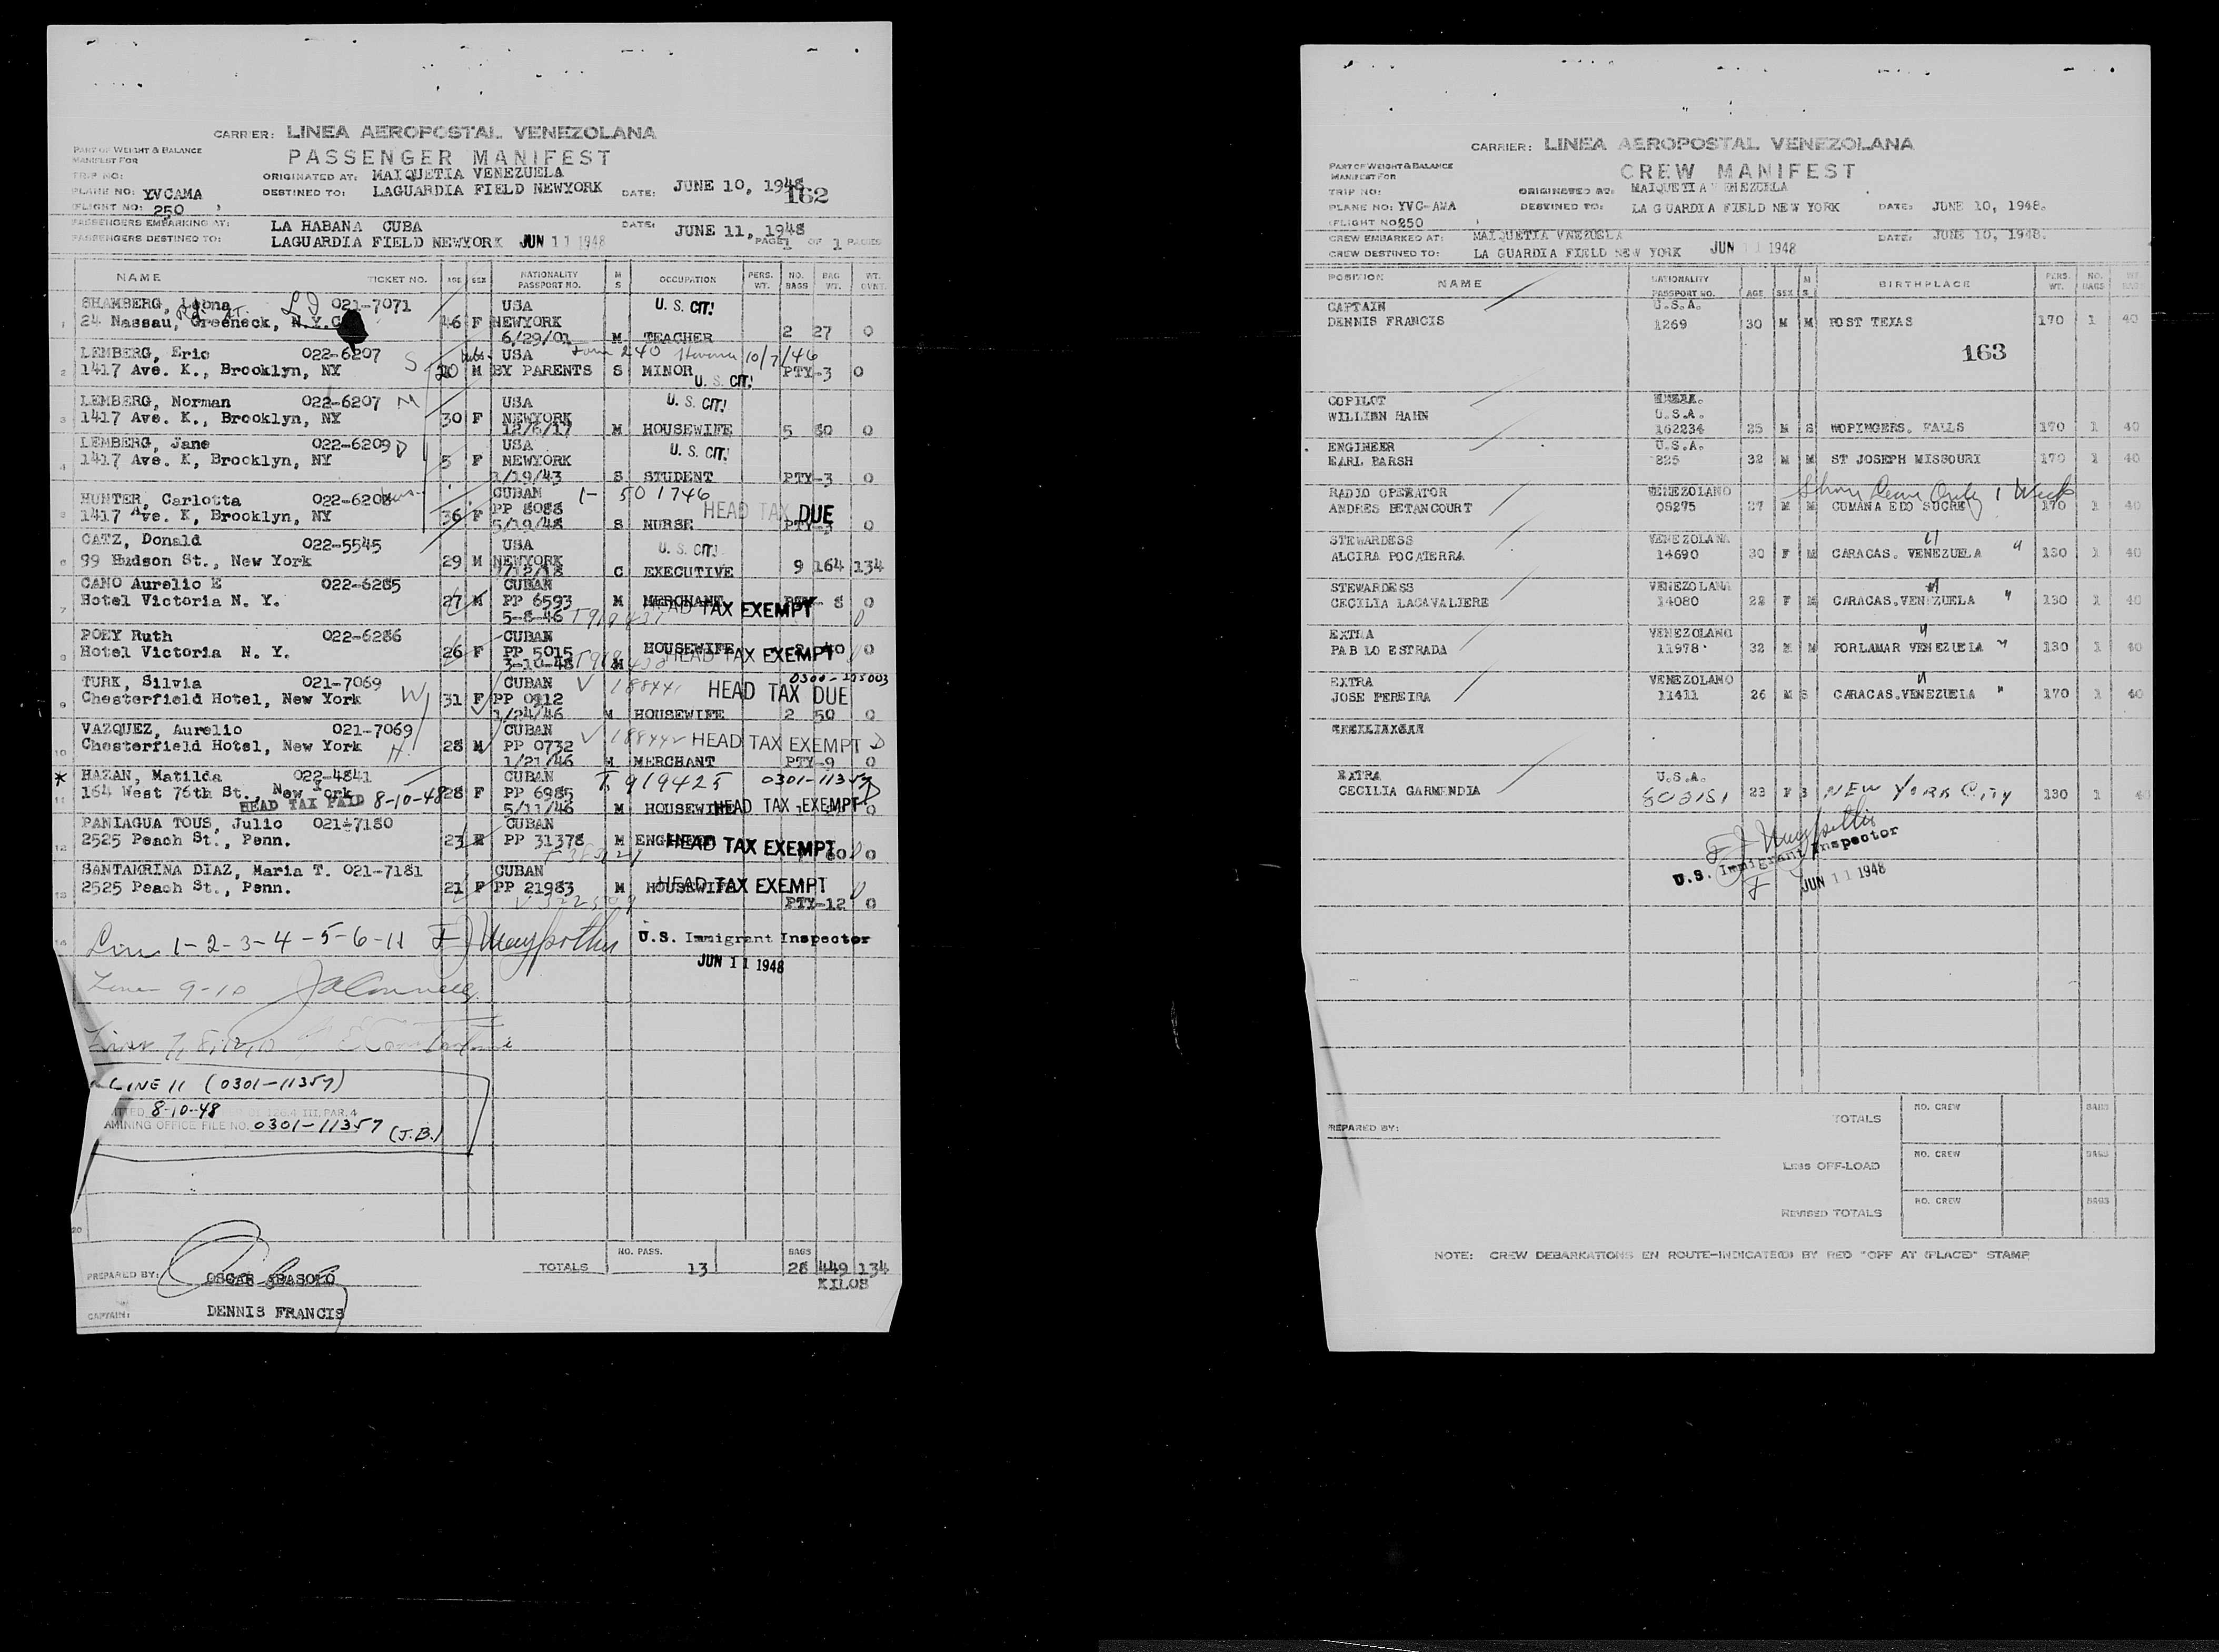 CARRIER: LINEA AEROPOSTAL VENEZOLANA
PART OF WEIGHT & BALANCE
MANIFEST FOR
PASSENGER MANIFEST
TRIP NO:
ORIGINATED AT: MAIQUETIA VENEZUELA
PLANE NO: YVCAMA
DESTINED TO: LAGUARDIA FIELD NEWYORK DATE: JUNE 10, 1948.
162
(FLIGHT NO: 250 )
PASSENGERS EMBARKING AT: LA HABANA CUBA DATE: JUNE 11, 1948
PASSENGERS DESTINED TO: LAGUARDIA FIELD NEWYORK JUN 11 1948 PAGE 1 OF 1 PAGES
NAME TICKET NO. AGE SEX NATIONALITY PASSPORT NO. M S OCCUPATION PERS. WT. NO. BAGS BAG WT. WT. OVNT.
SHAMBERG, Leona 021-7071 USA U. S. CIT!
1 24 Nassau, Greeneck, N.Y.C 46 F NEWYORK
6/29/01 M TEACHER 2 27 0
LEMBERG, Eric 022-6207 S USA 240 10/7/46
2 1417 Ave. K., Brooklyn, NY M BY PARENTS S MINOR PTY-3 0
U. S. CIT!
LEMBERG, Norman 022-6207 M USA U. S. CIT!
3 1417 Ave. K., Brooklyn, NY 30 F NEWYORK
12/6/17 M HOUSEWIFE 5 80 0
LEMBERG, Jane 022-6209 D USA U. S. CIT!
4 1417 Ave. K, Brooklyn, NY 5 F NEWYORK
1/19/43 S STUDENT PTY-3 0
HUNTER, Carlotta 022-6208 CUBAN 1- 501746
1417 Ave. K, Brooklyn, NY 36 F PP 8088 HEAD TAX DUE
5/19/48 S NURSE PTY-3 0
CATZ, Donald 022-5545 USA U. S. CIT!
6 99 Hudson St., New York 29 M NEWYORK
C EXECUTIVE 9 164 134
CANO Aurelio E 022-6285 CUBAN
7 Hotel Victoria N. Y. 27 M PP 6593 M MERCHANT PTY- 8 0
5-8-46 HEAD TAX EXEMPT
POEY Ruth 022-6286 CUBAN
Hotel Victoria N. Y. 26 F PP 5015 HOUSEWIFE 40 0
3-10-48 M HEAD TAX EXEMPT
TURK, Silvia 021-7069 CUBAN 188441
9 Chesterfield Hotel, New York W 31 F PP 0912 HEAD TAX DUE
1/24/46 M HOUSEWIFE 2 50 0
VAZQUEZ, Aurelio 021-7069 CUBAN
10 Chesterfield Hotel, New York H 28 M PP 0732 188442 HEAD TAX EXEMPT
1/21/46 M MERCHANT PTY-9 0
* HAZAN, Matilda 022-4841 CUBAN T 919425 0301-11357
11 164 West 76th St., New York 28 F PP 6985
HEAD TAX PAID 8-10-48 5/11/46 M HOUSEWIFE HEAD TAX EXEMPT 0
PANIAGUA TOUS, Julio 021-7180 CUBAN
12 2525 Peach St., Penn. 23 M PP 31378 M HEAD TAX EXEMPT 60 0
SANTAMRINA DIAZ, Maria T. 021-7181 CUBAN
13 2525 Peach St., Penn. 21 F PP 21983 M HOUSEWIFE HEAD TAX EXEMPT
PTY-12 0
14 Line 1-2-3-4-5-6-11 U.S. Immigrant Inspector
JUN 11 1948
Line 9-10
LINE 11 (0301-11357)
8-10-48 III, PAR. 4
AMINING OFFICE FILE NO. 0301-11357 (J.B.)
20
TOTALS NO. PASS. 13 BAGS 28 449 134
KILOS
PREPARED BY: OSCAR ABASOLO
CAPTAIN: DENNIS FRANCIS
CARRIER: LINEA AEROPOSTAL VENEZOLANA
PART OF WEIGHT & BALANCE
MANIFEST FOR
CREW MANIFEST
TRIP NO: ORIGINATED AT: MAIQUETIA VENEZUELA
PLANE NO: YVC-AMA DESTINED TO: LA GUARDIA FIELD NEW YORK DATE: JUNE 10, 1948.
(FLIGHT NO 250 )
CREW EMBARKED AT: MAIQUETIA VNEZUELA DATE: JUNE 10, 1948.
CREW DESTINED TO: LA GUARDIA FIELD NEW YORK JUN 11 1948
POSITION NAME NATIONALITY PASSPORT NO. AGE SEX M S BIRTHPLACE PERS. WT. NO. BAGS WT.
CAPTAIN U.S.A.
DENNIS FRANCIS 1269 30 M M POST TEXAS 170 1 40
163
COPILOT
WILLIEN HAHN U.S.A.
162234 25 M S WOPINGERS. FALLS 170 1 40
ENGINEER U.S.A.
EARL BARSH 825 32 M M ST JOSEPH MISSOURI 170 1 40
RADIO OPERATOR VENEZOLANO Shore Leave Only 1 Week
ANDRES BETANCOURT 08275 27 M M CUMANA EDO SUCRE 170 1 40
STEWARDESS VENEZOLANA
ALCIRA POCATERRA 14690 30 F M CARACAS. VENEZUELA " 130 1 40
STEWARDESS VENEZOLANA
CECILIA LACAVALIERE 14080 28 F M CARACAS.VENEZUELA " 130 1 40
EXTRA VENEZOLANO
PABLO ESTRADA 11978 32 M M PORLAMAR VENEZUELA " 130 1 40
EXTRA VENEZOLANO
JOSE PEREIRA 11411 26 M S CARACAS.VENEZUELA " 170 1 40
EXTRA U.S.A.
CECILIA GARMENDIA 502151 23 F S NEW YORK CITY 130 1 40
U.S. Immigrant Inspector
JUN 11 1948
PREPARED BY:
TOTALS NO. CREW BAGS
LESS OFF-LOAD NO. CREW BAGS
REVISED TOTALS NO. CREW BAGS
NOTE: CREW DEBARKATIONS EN ROUTE-INDICATE(D) BY RED "OFF AT (PLACE)" STAMP.